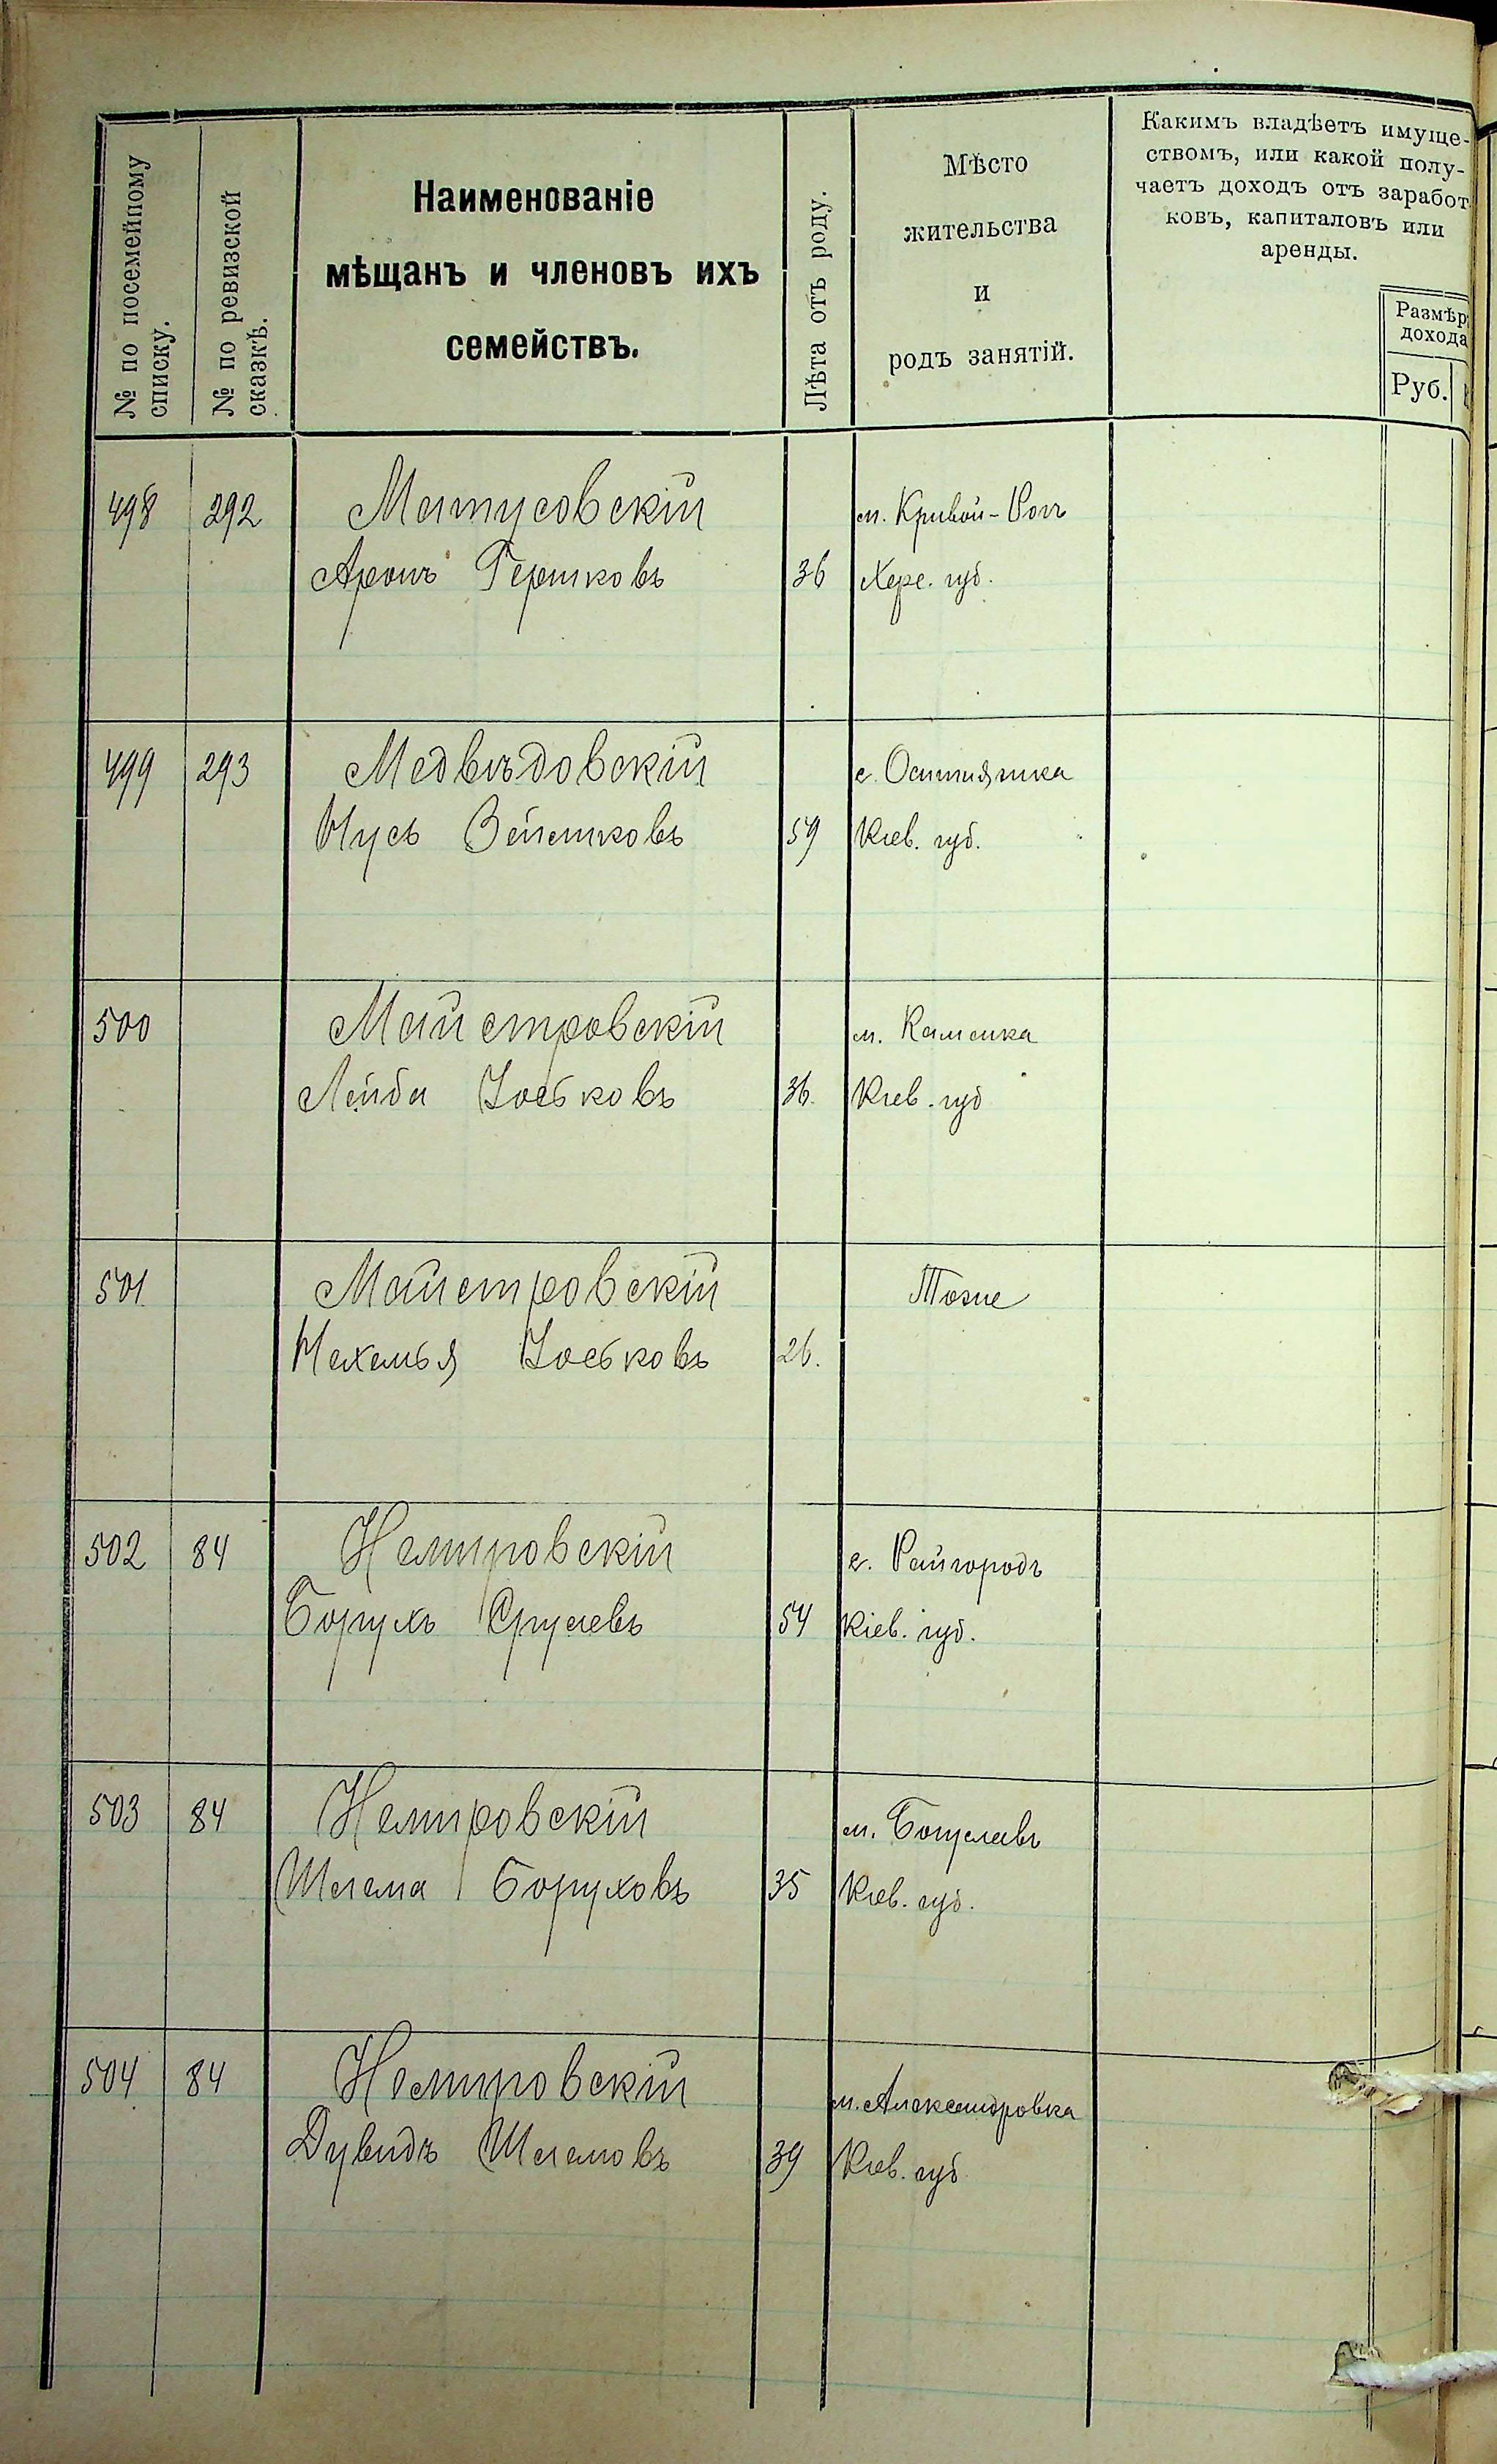 № по посемейному
списку.
№ по ревизской
сказкѣ.
Наименованіе
мѣщанъ и членовъ ихъ
семействъ.
Лѣта отъ роду.
Мѣсто
жительства
и
родъ занятій.
Какимъ владѣетъ имуще-
ствомъ, или какой полу-
чаетъ доходъ отъ заработ
ковъ, капиталовъ или
аренды.
Размѣр
дохода
Руб.
498 292 Матусовскій м. Кривой-Рогъ
Аронъ Гершковъ 36 Херс. губ.
499 293 Медвѣдовскій с. Оситняжка
Нусь 59 Кіев. губ.
500 Майстровскій м. Каменка
Лейба Іоськовъ 36. Кіев. губ
501 Майстровскій Тоже
Нехемья Іоськовъ 26.
502 84 Немировскій с. Райгородъ
Борухъ Срулевъ 54 Кіев. губ.
503 84 Немировскій м. Богуславъ
Шлема Боруховъ 35 Кіев. губ.
504 84 Немировскій м. Александровка
Дувидъ Шлемовъ 39 Кіев. губ